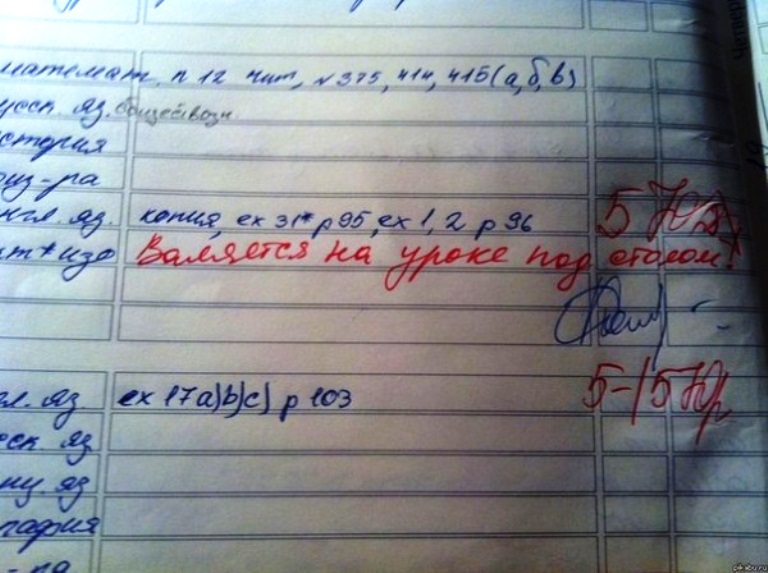 математ. п 12 чит, №375, 414, 415(а,б,в)
усск. яз. обществозн.
стория
из-ра
нгл. яз. копия, ex 31* p 95, ex 1, 2 p 96 5
ит*изо Валяется на уроке под столом!
гл. яз. ex 17a)b)c) p 103 5-/5
сск. яз
яз
рафия
-ра
pikabu.ru